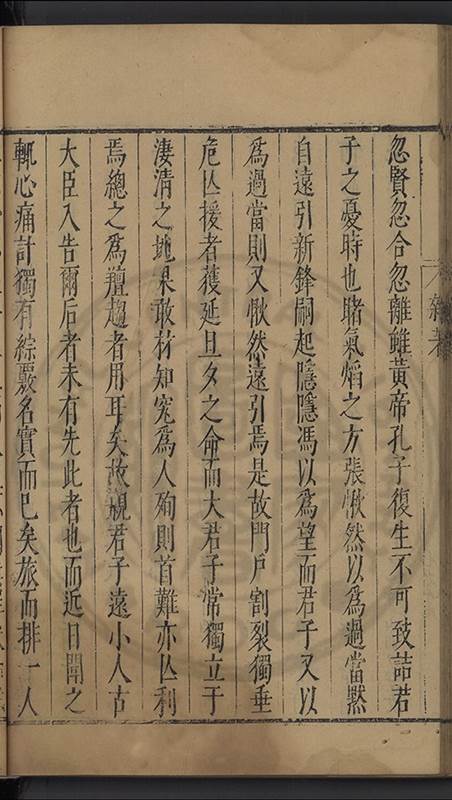 忽賢忽合忽離雖黃帝孔子復生不可致詰君
子之憂時也睹氣焰之方張愀然以爲過當默
自遠引新鋒嗣起隱隱馮以爲望而君子又以
爲過當則又愀然遠引焉是故門戶割裂獨垂
危亾援者獲延旦夕之命而大君子常獨立于
淒清之地果敢材知寃爲人殉則首難亦亾利
焉總之爲羶趨者用耳矣故親君子遠小人古
大臣入告爾后者未有先此者也而近日聞之
輒心痛計獨有綜覈名實而已矣旅而排一人
雜著